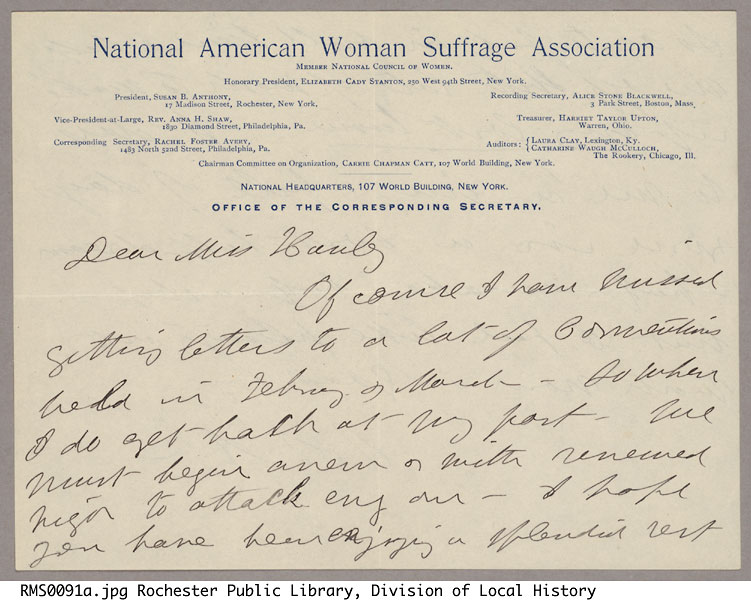 National American Woman Suffrage Association
Member National Council of Women.
Honorary President, Elizabeth Cady Stanton, 250 West 94th Street, New York.
President, Susan B. Anthony,
17 Madison Street, Rochester, New York.
Vice-President-at-Large, Rev. Anna H. Shaw,
1830 Diamond Street, Philadelphia, Pa.
Corresponding Secretary, Rachel Foster Avery,
1483 North 52nd Street, Philadelphia, Pa.
Recording Secretary, Alice Stone Blackwell,
3 Park Street, Boston, Mass.
Treasurer, Harriet Taylor Upton,
Warren, Ohio.
Auditors: { Laura Clay, Lexington, Ky.
Catharine Waugh McCulloch,
The Rookery, Chicago, Ill.
Chairman Committee on Organization, Carrie Chapman Catt, 107 World Building, New York.
National Headquarters, 107 World Building, New York.
Office of the Corresponding Secretary.
Dear Miss Hanley
Of course I have missed
getting letters to a lot of Conventions
held in Febray & March - So when
I do get back at my post - We
must begin anew & with renewed
vigor to attack eny one - I hope
you have been enjoying a splendid rest
RMS0091a.jpg Rochester Public Library, Division of Local History